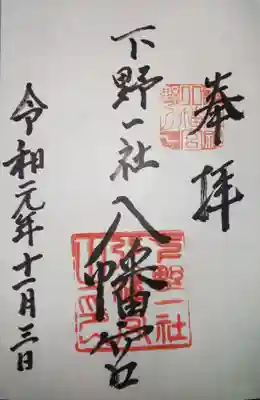 奉拝
下野一社八幡宮
令和元年十一月三日